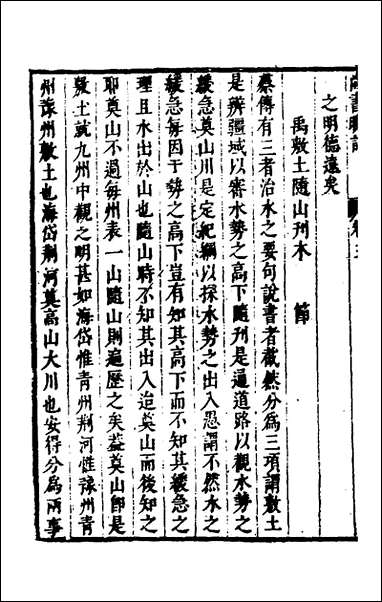 之明德遠矣
禹敷土隨山刋木 節
蔡傳有三者治水之要句說書者截然分爲三項謂敷土
是辨疆域以審水勢之高下隨刋是通道路以觀水勢之
緩急奠山川是定紀綱以探水勢之出入愚謂不然水之
緩急每因于勢之高下豈有知其高下而不知其緩急之
理且水出於山也隨山時不知其出入迨奠山而後知之
耶奠山不過每州表一山隨山則遍歷之矣葢奠山卽是
敷土就九州中觀之明甚如海岱惟青州荆河惟豫州青
州豫州敷土也海岱荆河奠高山大川也安得分爲兩事